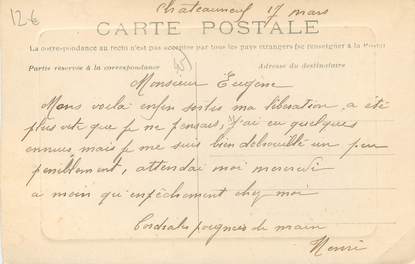 Chateauneuf 17 mars
12€
CARTE POSTALE
La correspondance au recto n'est pas acceptée par tous les pays étrangers (se renseigner à la Poste)
Partie réservée à la correspondance
Adresse du destinataire
Monsieur Eugène
Mons voila enfin sortes ma liberation a été
plus vite que je ne pensais, j'ai eu quelques
ennuis mais je me suis bien debrouillé un peu
peniblement, attendai moi mercredi
a moin qu'enpéchement chez moi
Cordiales poignées de main
Henri